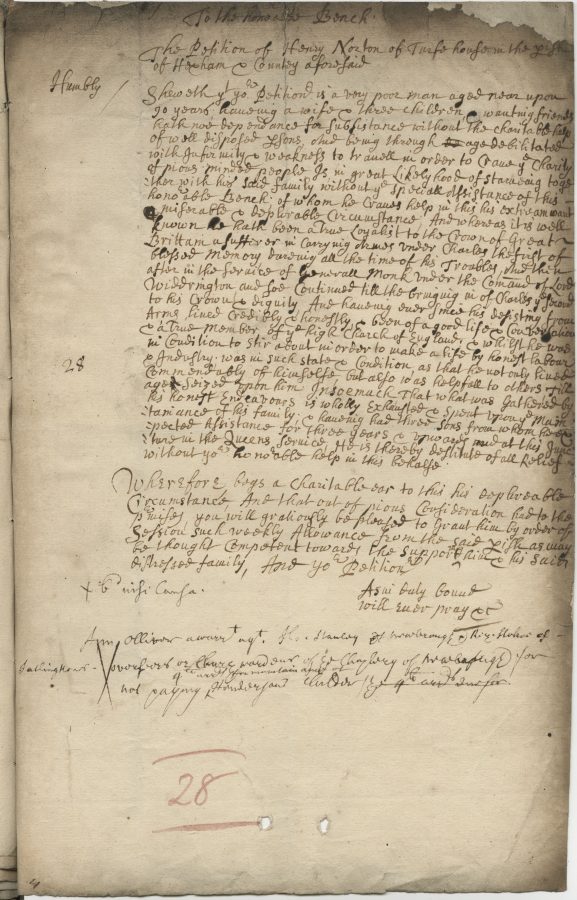 To the hono:ble Bench.
The Petition of Henry Norton of Turfe house in the pish
of Hexham & Countey aforesaid
Humbly
Sheweth yt yor Petitionr is a very poor man aged near upon
90 years haveing a wife & three Children & wanting friends
hath noe dependance for Subsistance without the charitable help
of well disposed psons, And being through age debilitated
with Infirmity & weakness to travell in order to Crave ye Charity
of pious minded people Is in great Likelyhood of Starving toge
ther with his said family without ye speciall Assistance of this
honorable Bench: of whom he Craves help in this his extream want
miserable & deplorable Circumstance And whereas it is well
known he hath been a True Loyalist to the Crown of Great
Brittain a sufferer in Carrying Armes Under Charles the first of
blessed Memory dureing all the time of his Troubles, And then
after in the Service of Generall Monk Under the Comand of Lord
Widdrington and soe Continued till the bringing in of Charles ye second
to his Crown & dignity And haveing ever since his desisting from
Arms lived Credibly & honestly & been of a good life & Conversation
& a true Member of ye high Church of England, & whilst he was
in Condition to Stir about in order to make a life by honest Labour
28
& Industry: was in such state & Condition, as that he not only lived
Commendably of himselfe but also was helpfull to others till
age seized upon him Insoemuch That what was gathered by
his honest Endeavours is wholly Exhausted & Spent upon Main
taniance of his family: & haveing had three Sons from whom he ex
pected Assistance for three years & upwards and at this Junc
ture in the Queens Service, He is thereby destitute of all Relief
without yor honorable help in this behalfe
Wherefore begs a Charitable ear to this his deploreable
Circumstance And that out of pious Consideration had to the
pmises, you will gratiously be pleased to Grant him by order of
Session such weekly Allowance from the said pish as may
be thought Competent towards the Support him & his said
distressed family, And yor Petitionr
As in duty bound
will ever pray &c
+ 6d nisi Causa.
Oliver a warrt agt. Stanley of newbrough &
overseers or Church wardens of ye Chaplery of Newbrough for
not paying Henderson
28